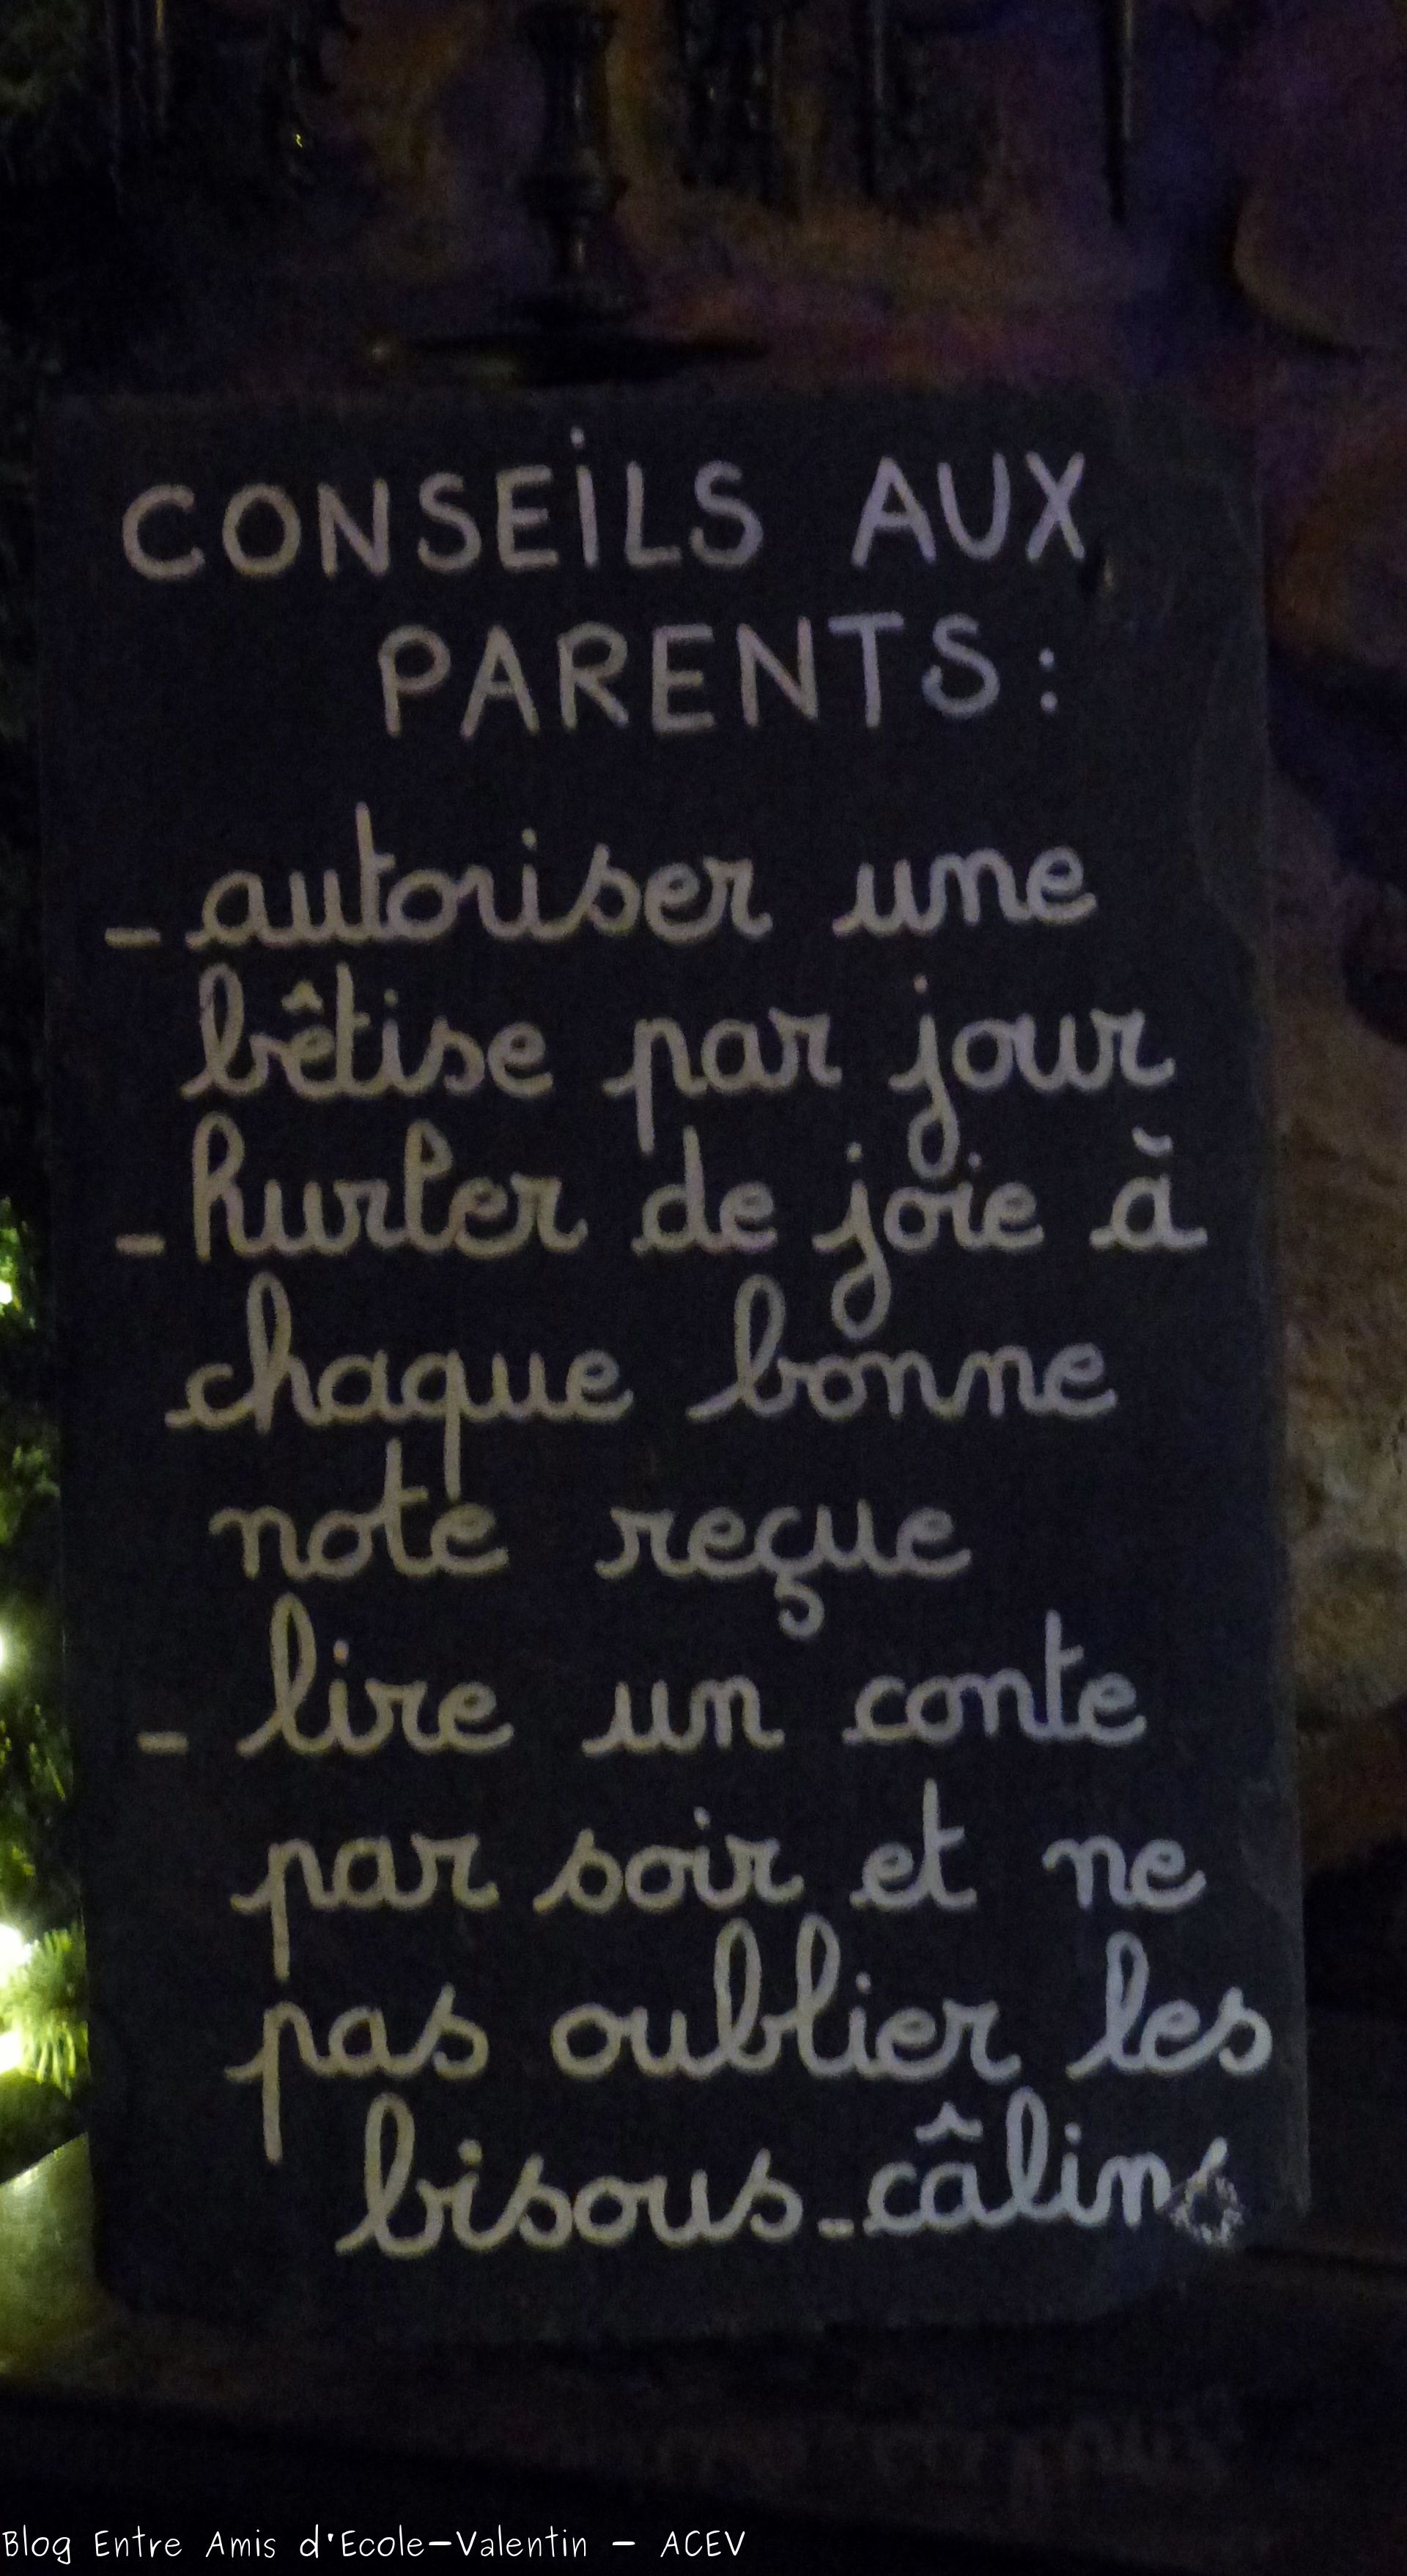 CONSEILS AUX
PARENTS :
- autoriser une
bêtise par jour
- hurler de joie à
chaque bonne
note reçue
- lire un conte
par soir et ne
pas oublier les
bisous-câlins
Blog Entre Amis d'Ecole-Valentin - ACEV